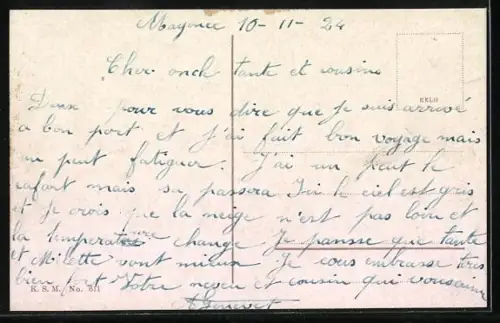 Mayence 10-11-24
Cher oncle tante et cousins
Deux pour vous dire que je suis arrivé
a bon port et j'ai fait bon voyage mais
un peut fatiguer. J'ai un peut le
cafart mais sa passera Ici le ciel est gris
et je crois que la neige n'est pas loin et
la temperature change Je pansse que tante
et Milette vont mieux. Je vous embrasse tres
bien fort Votre neveu et cousin qui vous aime
K. S. M. No. 811